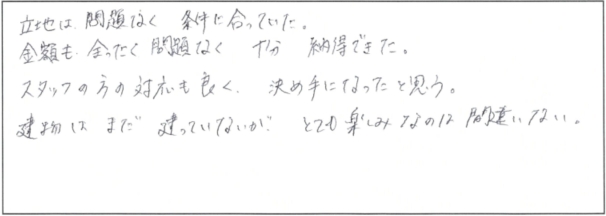 立地は、問題なく 条件に合っていた。
金額も、全ったく問題なく 十分 納得できた。
スタッフの方の対応も良く、決め手になったと思う。
建物は まだ 建っていないが とても楽しみなのは間違いない。